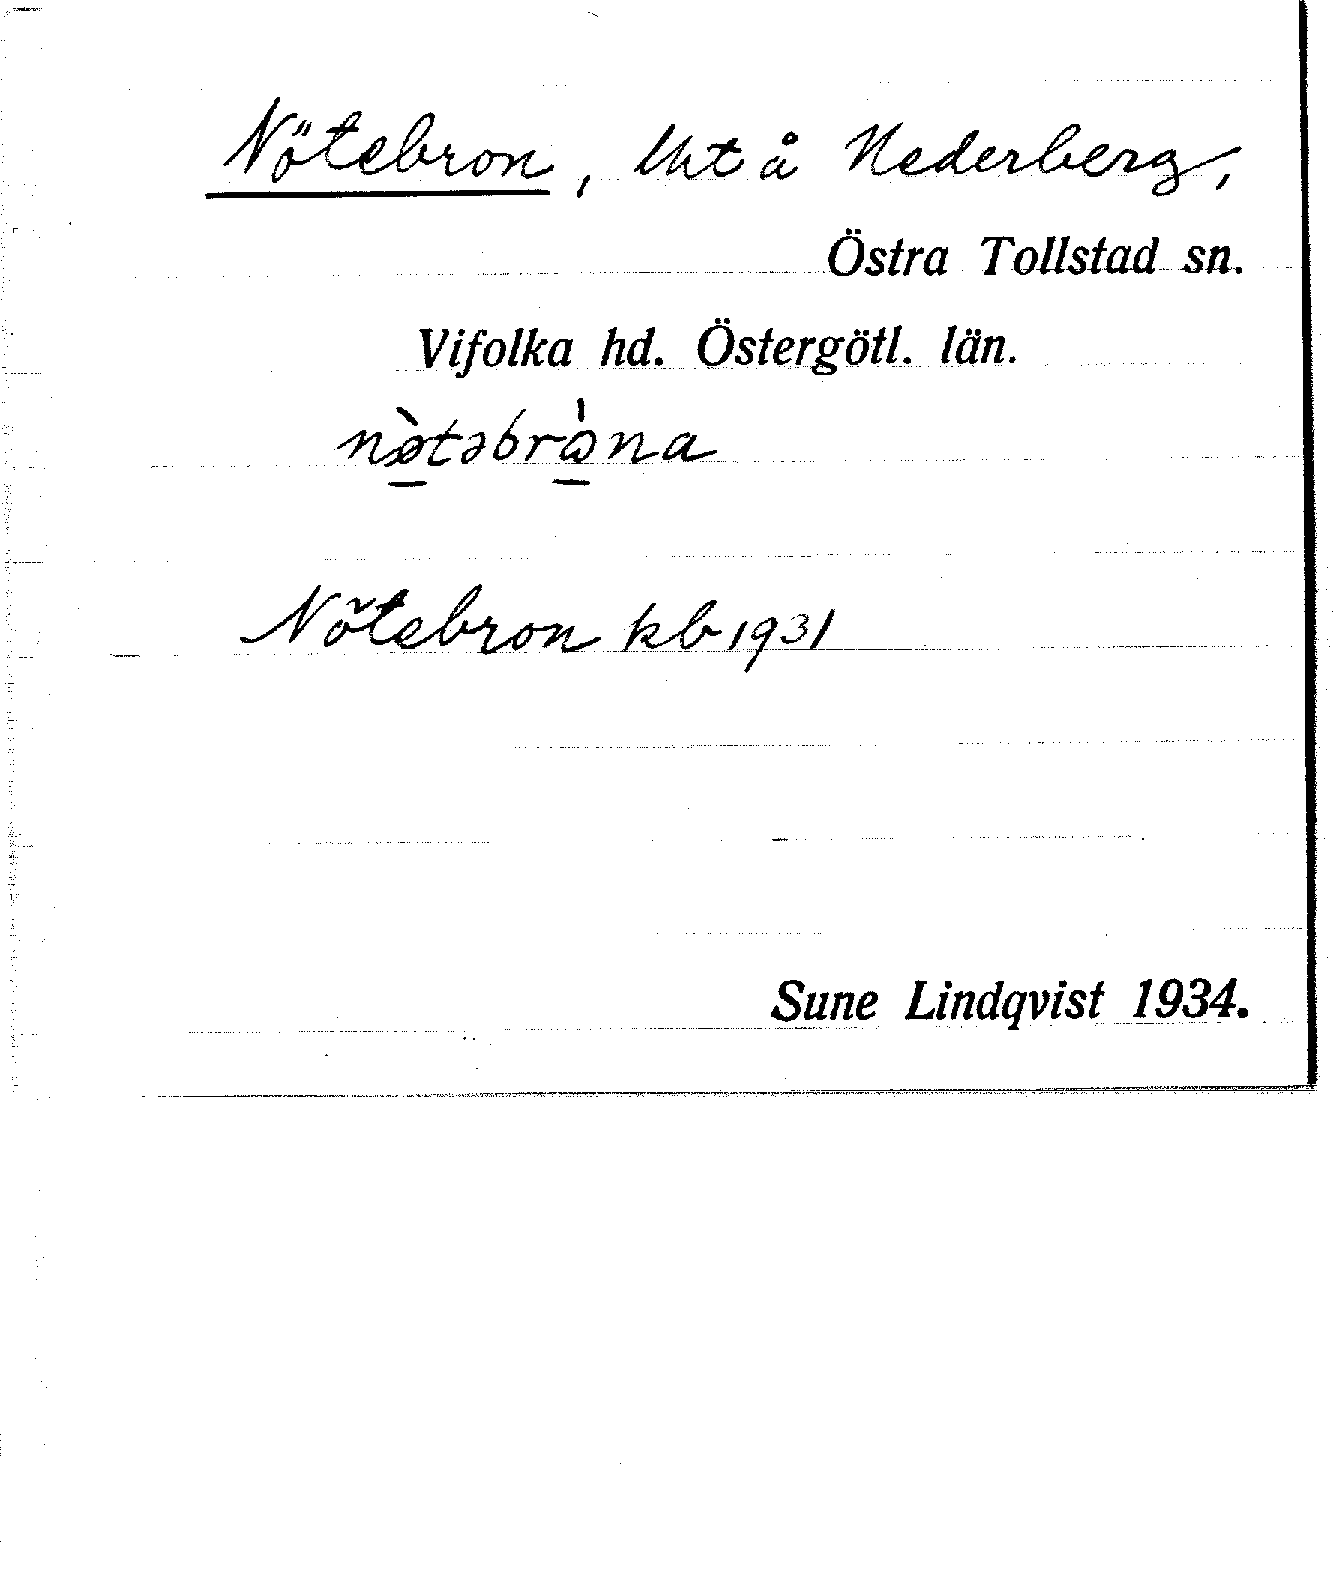 Nötebron, lht å Nederberg,
Östra Tollstad sn.
Vifolka hd. Östergötl. län.
nø̀təbrὼna
Nötebron kb 1931
Sune Lindqvist 1934.